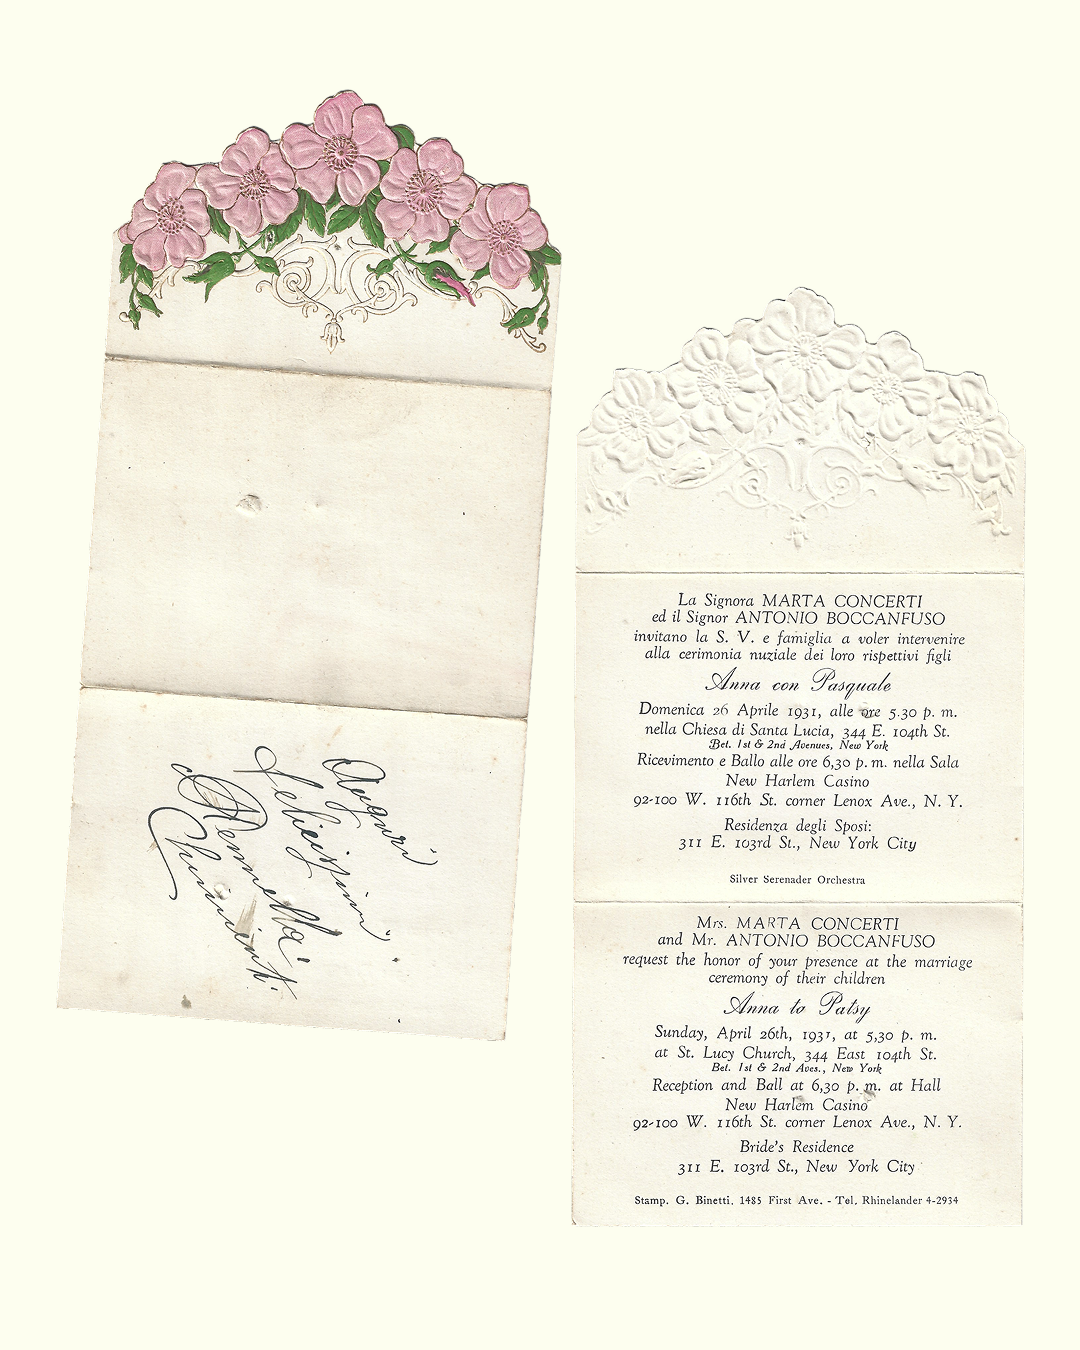 Auguri
Felicissimi
La Signora MARTA CONCERTI
ed il Signor ANTONIO BOCCANFUSO
invitano la S. V. e famiglia a voler intervenire
alla cerimonia nuziale dei loro rispettivi figli
Anna con Pasquale
Domenica 26 Aprile 1931, alle ore 5.30 p. m.
nella Chiesa di Santa Lucia, 344 E. 104th St.
Bet. 1st & 2nd Avenues, New York
Ricevimento e Ballo alle ore 6,30 p. m. nella Sala
New Harlem Casino
92-100 W. 116th St. corner Lenox Ave., N. Y.
Residenza degli Sposi:
311 E. 103rd St., New York City
Silver Serenader Orchestra
Mrs. MARTA CONCERTI
and Mr. ANTONIO BOCCANFUSO
request the honor of your presence at the marriage
ceremony of their children
Anna to Patsy
Sunday, April 26th, 1931, at 5,30 p. m.
at St. Lucy Church, 344 East 104th St.
Bet. 1st & 2nd Aves., New York
Reception and Ball at 6,30 p. m. at Hall
New Harlem Casino
92-100 W. 116th St. corner Lenox Ave., N. Y.
Bride's Residence
311 E. 103rd St., New York City
Stamp. G. Binetti, 1485 First Ave. - Tel. Rhinelander 4-2934